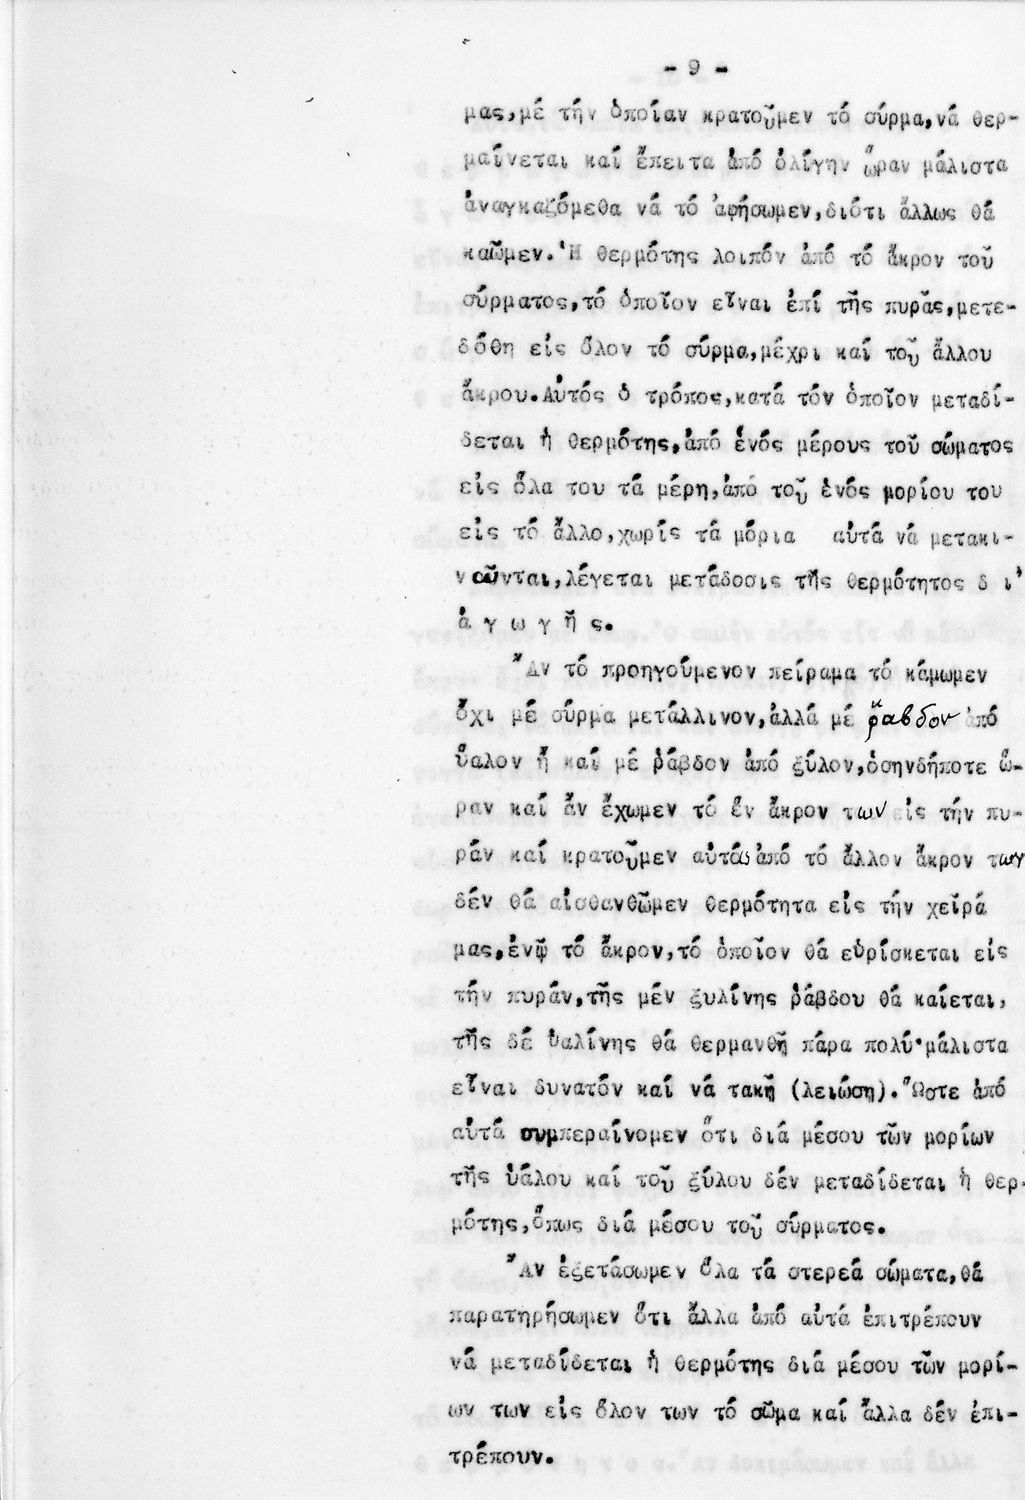 - 9 -
μας,μέ τήν ὁποίαν κρατοῦμεν τό σύρμα,νά θερ-
μαίνεται καί ἔπειτα ἀπό ὀλίγην ὥραν μάλιστα
ἀναγκαζόμεθα νά τό ἀφήσωμεν,διότι ἄλλως θά
καῶμεν.Ἡ θερμότης λοιπόν ἀπό τό ἄκρον τοῦ
σύρματος,τό ὁποῖον εἶναι ἐπί τῆς πυρᾶς,μετε-
δόθη εἰς ὅλον τό σύρμα,μέχρι καί τοῦ ἄλλου
ἄκρου.Αὐτός ὁ τρόπος,κατά τόν ὁποῖον μεταδί-
δεται ἡ θερμότης,ἀπό ἑνός μέρους τοῦ σώματος
εἰς ὅλα του τά μέρη,ἀπό τοῦ ἑνός μορίου του
εἰς τό ἄλλο,χωρίς τά μόρια αὐτά νά μετακι-
νοῦνται,λέγεται μετάδοσις τῆς θερμότητος δ ι'
ἀ γ ω γ ῆ ς.
Ἄν τό προηγούμενον πείραμα τό κάμωμεν
ὄχι μέ σύρμα μετάλλινον,ἀλλά μέ ράβδον ἀπό
ὕαλον ἤ καί μέ ῥάβδον ἀπό ξύλον,ὁσηνδήποτε ὥ-
ραν καί ἄν ἔχωμεν τό ἕν ἄκρον των εἰς τήν πυ-
ράν καί κρατοῦμεν αὐτάς ἀπό τό ἄλλον ἄκρον των
δέν θά αἰσθανθῶμεν θερμότητα εἰς τήν χεῖρά
μας,ἐνῷ τό ἄκρον,τό ὁποῖον θά εὑρίσκεται εἰς
τήν πυράν,τῆς μέν ξυλίνης ῥάβδου θά καίεται,
τῆς δέ ὑαλίνης θά θερμανθῇ πάρα πολύ·μάλιστα
εἶναι δυνατόν καί νά τακῇ (λειώσῃ).Ὥστε ἀπό
αὐτά συμπεραίνομεν ὅτι διά μέσου τῶν μορίων
τῆς ὑάλου καί τοῦ ξύλου δέν μεταδίδεται ἡ θερ-
μότης,ὅπως διά μέσου τοῦ σύρματος.
Ἄν ἐξετάσωμεν ὅλα τά στερεά σώματα,θά
παρατηρήσωμεν ὅτι ἄλλα ἀπό αὐτά ἐπιτρέπουν
νά μεταδίδεται ἡ θερμότης διά μέσου τῶν μορί-
ων των εἰς ὅλον των τό σῶμα καί ἄλλα δέν ἐπι-
τρέπουν.